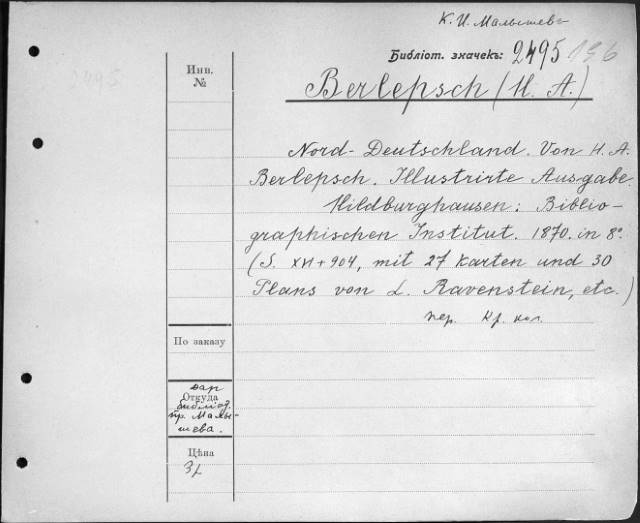 К. И. Малышевъ
Библіот. значекъ: 2495 196
2495
Инв. №
Berlepsch (H. A.)
Nord-Deutschland. Von H. A.
Berlepsch. Illustrirte Ausgabe.
Hildburghausen: Biblio-
graphischen Institut. 1870. in 8°.
(S. XVI + 904, mit 27 Karten und 30
Plans von L. Ravenstein, etc.)
пер. Кр. кол.
По заказу
Откуда
дар
библіот.
пр. Малы-
шева.
Цѣна